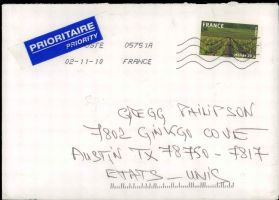 PRIORITAIRE
PRIORITY
POSTE 05751A
02-11-10 FRANCE
FRANCE
GREGG
7802 GINKGO COVE
AUSTIN TX 78750-7817
ETATS-UNIS